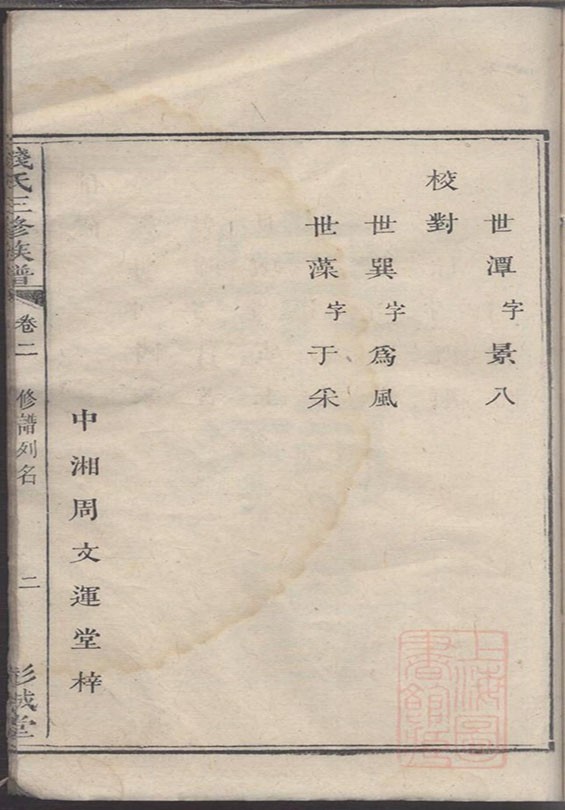 世潭字景八
校對
世巽字爲風
世藻字于采
中湘周文運堂梓
錢氏三修族譜
卷二
修譜列名
二
彭城堂
上海圖書館藏